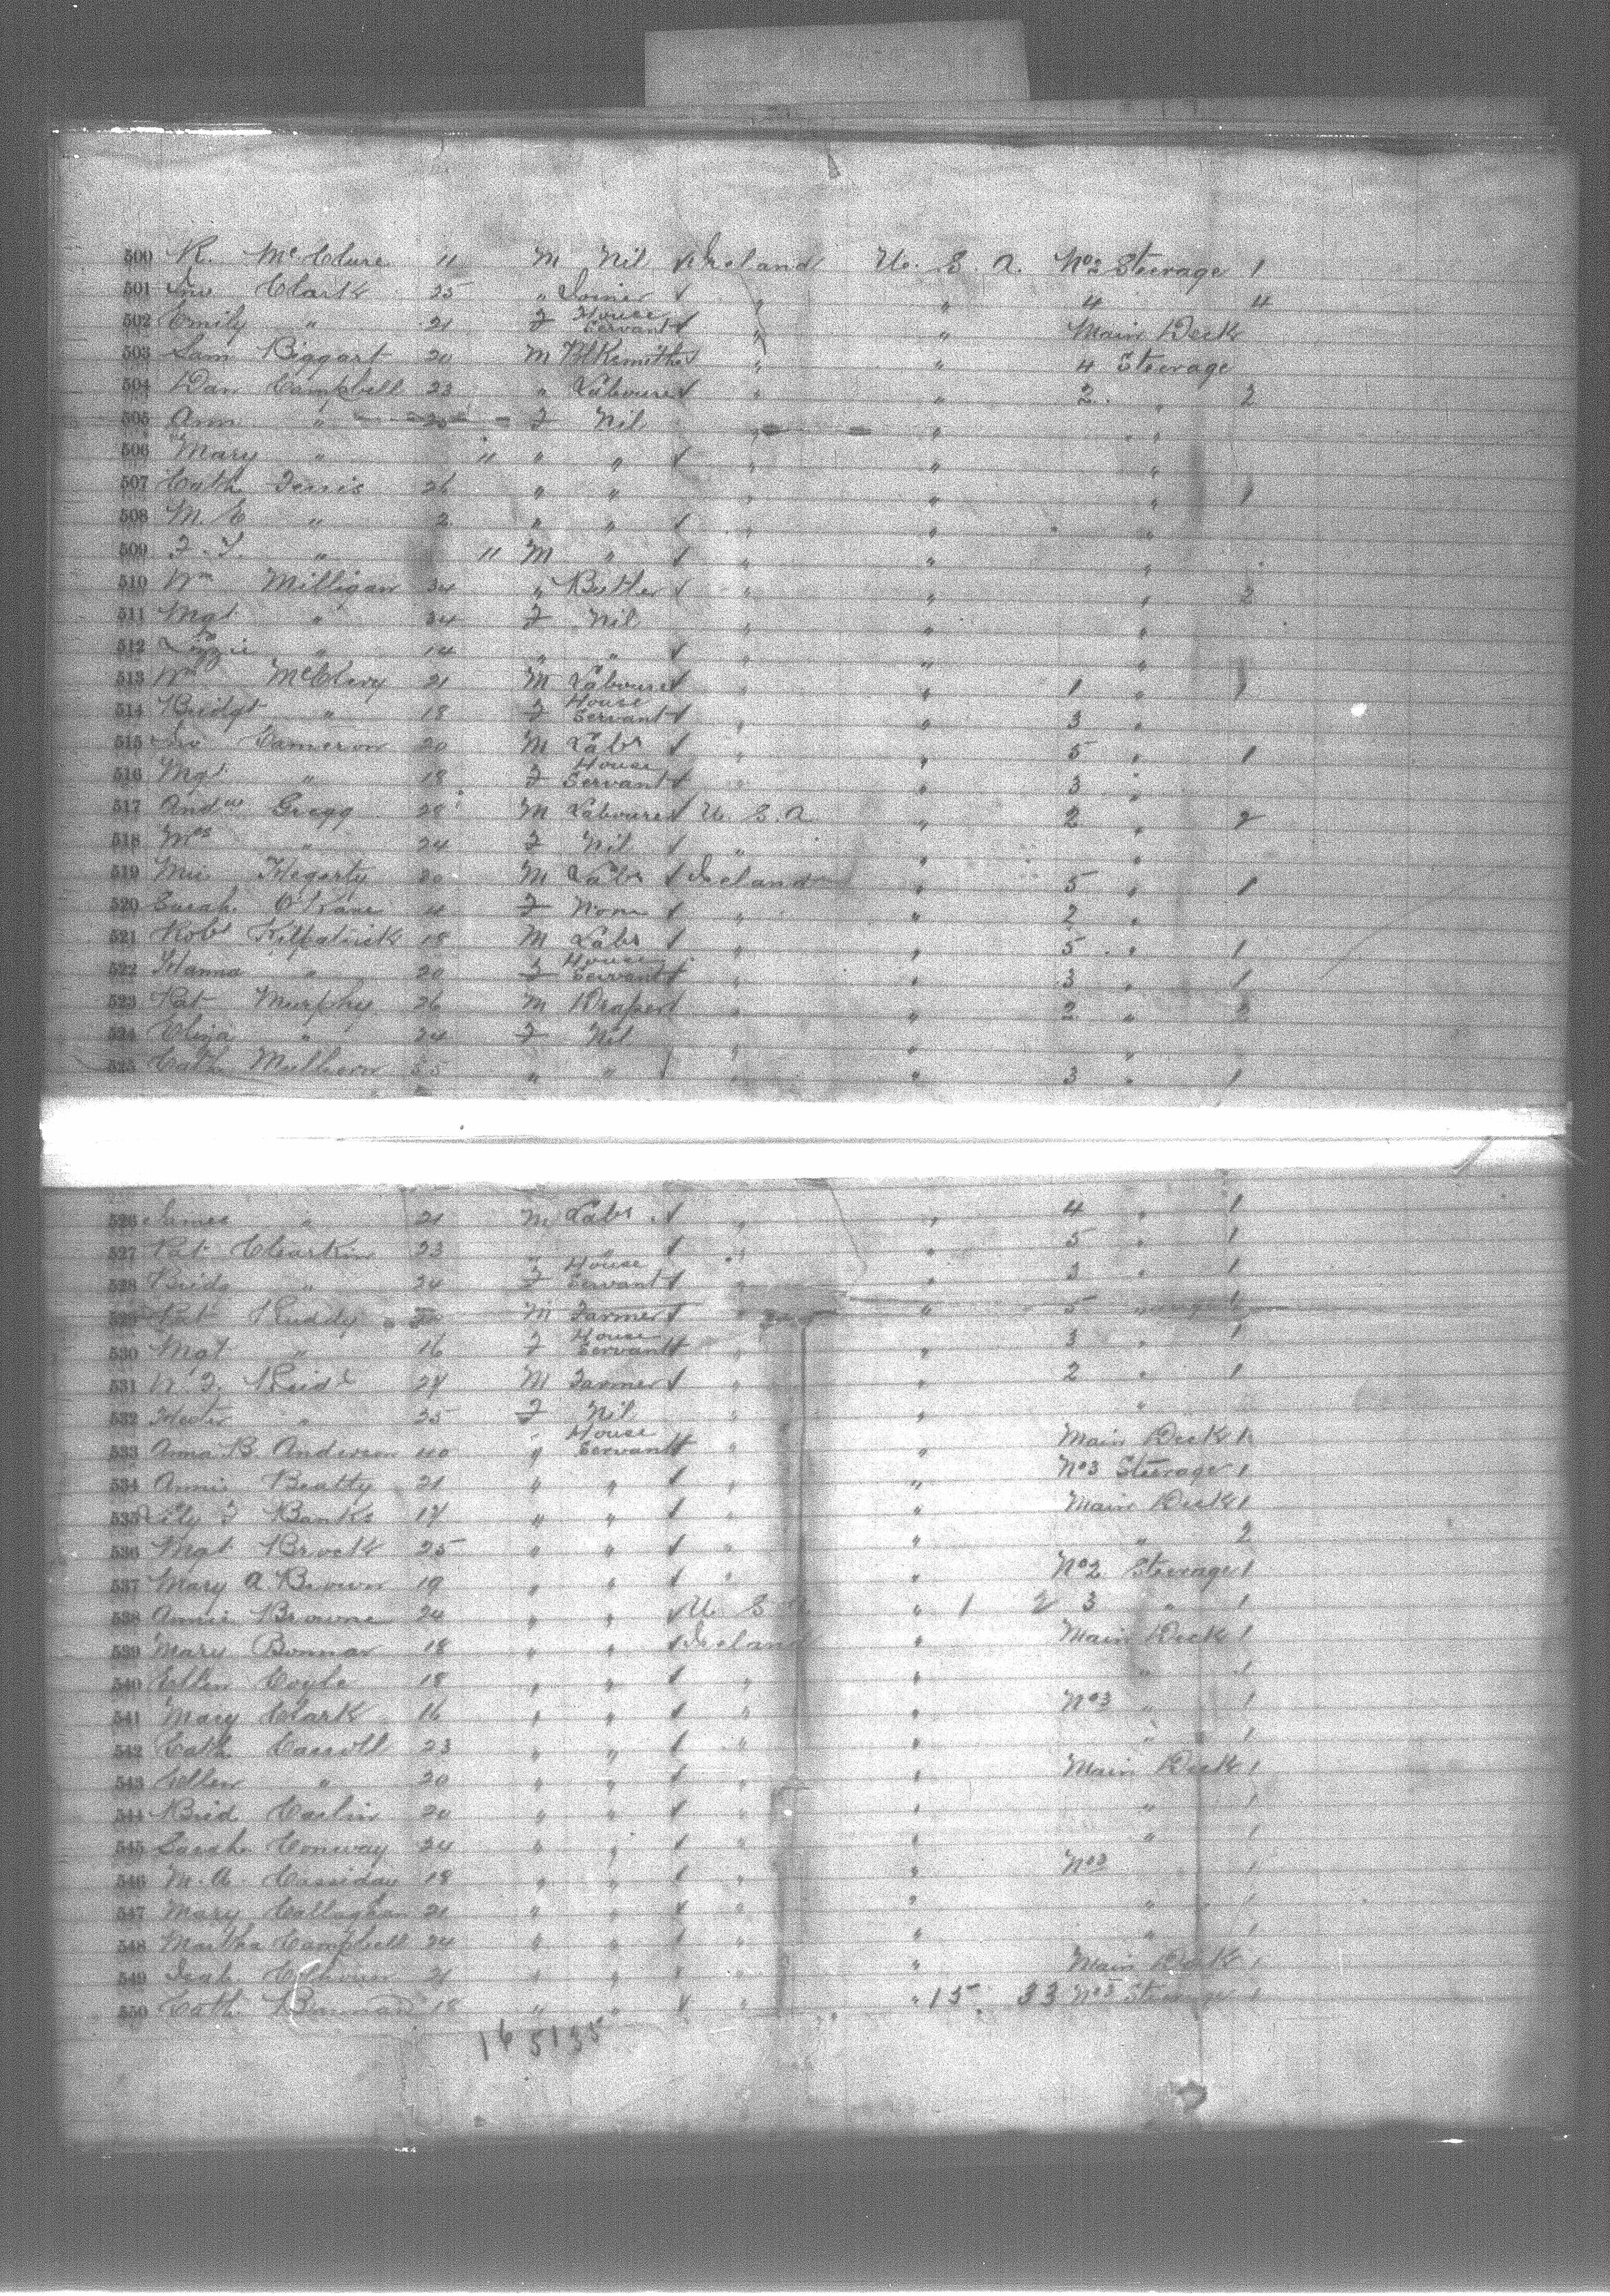 500 R. McClure 11 M Nil Ireland U. S. A. No 2 Steerage 1
501 Jno Clark 25 " Joiner " " 4 " 4
502 Emily " 21 F House Servant " " Main Deck
503 Sam Biggart 20 M Blksmith " " 4 Steerage
504 Dan Campbell 23 " Labourer " " 2 " 2
505 Ann " F Nil " " "
506 Mary " 11 " " " " "
507 Cath 26 " " " " " 1
508 M. E " 2 " " " " "
509 F. J. " 11 M " " " "
510 Wm Milligan 34 " Butler " " " 2
511 Mgt " 34 F Nil " " "
512 Lizzie " 14 " " " " "
513 Wm 21 M Labourer " " 1 " 1
514 Bridgt " 18 F House Servant " " 3 "
515 Jno Cameron 20 M Labr " " 5 " 1
516 Mgt " 18 F House Servant " " 3 "
517 Andw Gregg 28 M Labourer U. S. A " 2 " 2
518 Mrs " 24 F Nil " " "
519 Hegarty 20 M Labr Ireland " 5 " 1
520 Sarah O'Kane 11 F None " " 2 "
521 Robt Kilpatrick 18 M Labr " " 5 " 1
522 Hanna " 20 F House Servant " " 3 " 1
523 Pat Murphy 26 M Draper " " 2 " 2
524 Eliza " 24 F Nil " " "
525 Cath Mulhern 55 " " " " 3 " 1
526 James " 21 M Labr " " 4 " 1
527 Pat Clearkin 23 " " " " 5 " 1
528 Bridg " 24 F House Servant " " 3 " 1
529 Pat Ruddy M Farmer " " 5 "
530 Mgt " 16 F House Servant " " 3 " 1
531 W. F. Reid 27 M Farmer " " 2 " 1
532 Hester " 25 F Nil " " "
533 Anna B. Anderson 40 " House Servant " " Main Deck 1
534 Annie Beatty 21 " " " " No 3 Steerage 1
535 Banks 17 " " " " Main Deck 1
536 Mgt Brock 25 " " " " " 2
537 Mary A Brown 19 " " " " No 2 Steerage 1
538 Annie Browne 24 " " U. S. A " 1 2 3 " 1
539 Mary Bonnar 18 " " Ireland " Main Deck 1
540 Ellen Coyle 18 " " " " " 1
541 Mary Clark 16 " " " " No 3 " 1
542 Cath Carroll 23 " " " " " 1
543 Ellen " 20 " " " " Main Deck 1
544 Brid Carlin 20 " " " " " 1
545 Sarah Conway 24 " " " " " 1
546 M. A. Cassiday 18 " " " " No 3 1
547 Mary Callaghan 21 " " " " " 1
548 Martha Campbell 24 " " " " " 1
549 21 " " " " Main Deck 1
550 Cath 18 " " " " 15. 33 Steerage 1
165135